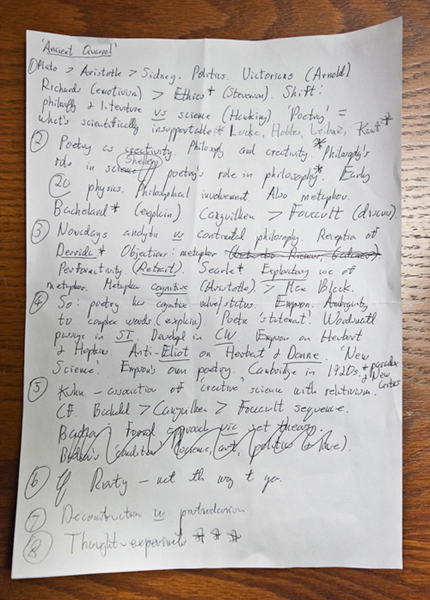 'Ancient Quarrel'
① Plato > Aristotle > Sidney. Politics. Victorians (Arnold)
Richards (emotivism) > Ethics* (Stevenson). Shift:
philosophy & literature vs science (Hawking) 'Poetry' =
what's scientifically insupportable* Locke, Hobbes, Leibniz, Kant*
② Poetry as creativity. Philosophy and creativity.* Philosophy's
role in science Shelley poetry's role in philosophy*. Early
20 physics. Philosophical involvement. Also metaphor.
Bachelard* (explain) Canguilhem > Foucault (discuss).
③ Nowadays analytic vs continental philosophy. Reception of
Derrida* Objections: metaphor
Performativity (Retrait). Searle* Explanatory use of
metaphor. Metaphor cognitive (Aristotle). > Max Black.
④ So: poetry has cognitive value/status. Empson. Ambiguity
to complex words. (explain). Poetic 'statement'. Wordsworth
passage in ST. Developed in CW Empson on Herbert
& Hopkins. Anti-Eliot on Herbert & Donne. 'New
Science'. Empson's own poetry. Cambridge in 1920s. * paradox & New Critics
⑤ Kuhn - association of 'creative' science with relativism.
Cf. Bachelard > Canguilhem > Foucault sequence.
Badiou Formal approach via set theory.
Badiou's 'conditions' (science, art, politics & love).
⑥ Rorty - not the way to go.
⑦ Deconstruction vs
⑧ Thought-experiments * * *